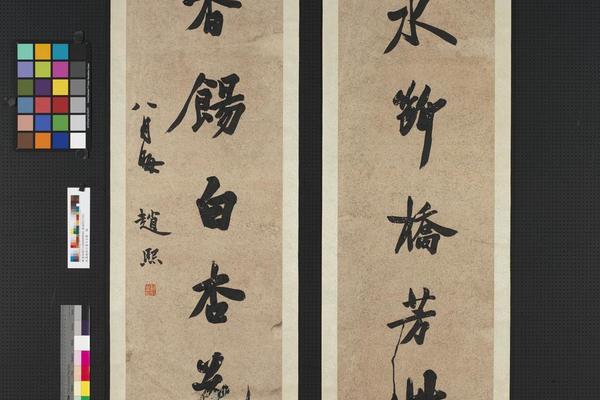 水斷橋芳
香餳白杏
八月晦 趙熙